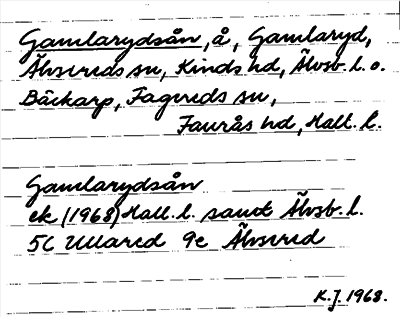 Gamlarydsån, å, Gamlaryd,
Älvsereds sn, Kinds hd, Älvsb. l. o.
Bäckarp, Fagereds sn,
Faurås hd, Hall. l.
Gamlarydsån
ek (1968) Hall. l. samt Älvsb. l.
5C Ullared 9c Älvsered
K.J. 1968.